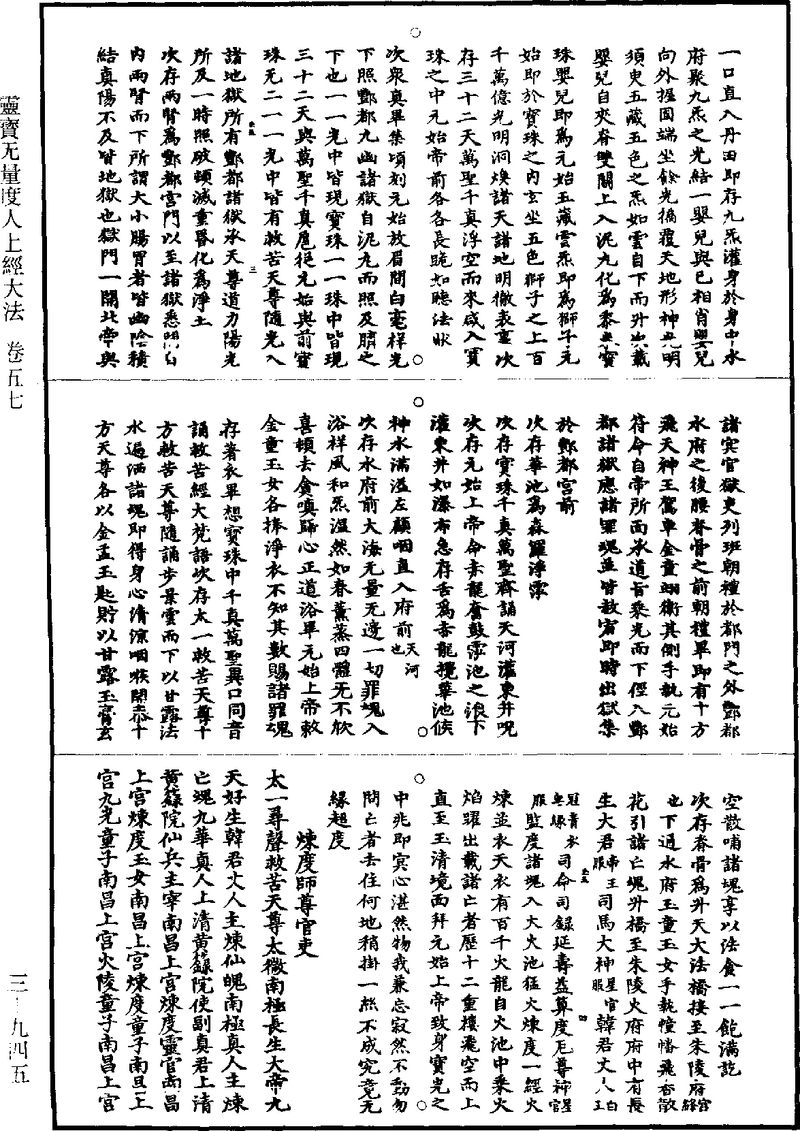 靈寶无量度人上經大法　卷五七
三－九四五
一口直入丹田即存九炁灌身於身中水
府聚九炁之光結一嬰兒與已相肖嬰兒
向外握固端坐餘光撝覆天地形神光明
須臾五藏五色之炁如雲自下而升㪯戴
嬰兒自夾脊雙關上入泥丸化為黍米寶
珠嬰兒即為元始五藏雲炁即為獅子元
始即於寶珠之內玄坐五色獅子之上百
千萬億光明洞煥諸天諸地明徹表裏次
存三十二天萬聖千真浮空而來咸入寶
珠之中元始帝前各各長跪如聽法狀
次眾真畢集頃刻元始放眉間白毫祥光
下照酆都九幽諸獄自泥丸而照及臍之
下也一一光中皆現寶珠一一珠中皆現
三十二天與萬聖千真扈從元始與前寶
珠无二一一光中皆有救苦天尊隨光入
諸地獄所有酆都諸獄承天尊道力陽光
所及一時照破頓滅重昬化為淨土
次存兩腎為酆都宮門以至諸獄悉開自
內兩腎而下所謂大小腸胃者皆幽陰積
結真陽不及皆地獄也獄門一開北帝與
諸冥官獄吏列班朝禮於都門之外酆都
水府之後腰脊骨之前朝禮畢即有十方
飛天神王駕車金童蜵衛其側手執元始
符命自帝所面承道旨乘光而下徑入酆
都諸獄應諸罪魂並皆赦宥即時出獄集
於酆都宮前
次存華池為森羅淨霐
次存寶珠千真萬聖齊誦天河灌東井呪
次存元始上帝命赤龍奮鼓霐池之浪下
灌東井如瀑布急存舌為赤龍攪華池候
神水滿溢左顧咽直入府前天河也
次存水府前大海无量无邊一切罪魂入
浴祥風和炁溫然如春薰蒸四體无不欣
喜頓去貪嗔歸心正道浴畢元始上帝敕
金童玉女各捧淨衣不知其數賜諸罪魂
存著衣畢想寶珠中千真萬聖異口同音
誦救苦經大梵語次存太一救苦天尊十
方救苦天尊隨誦步景雲而下以甘露法
水遍洒諸魂即得身心清涼咽喉開泰十
方天尊各以金盂玉匙貯以甘露玉膏玄
空散哺諸魂享以法食一一飽滿訖
次存脊骨為升天大法橋接至朱陵府絳宮
也下通水府玉童玉女手執幢幡飛香散
花引諸亡魂升橋至朱陵火府府中有長
生大君帝王服司馬大神星官服韓君丈人白玉
冠青衣皂緣司命司錄延壽益算度厄尊神星
服監度諸魂入大火池猛火煉度一經火
煉並衣天衣有百千火龍自火池中乘火
焰躍出戴諸亡者歷十二重樓飛空而上
直至玉清境面拜元始上帝致身寶光之
中兆即冥心湛然物我兼忘寂然不動勿
問亡者去住何地稍掛一絲不成究竟无
緣超度
煉度師尊官吏
太一尋聲救苦天尊太微南極長生大帝九
天好生韓君丈人主煉仙魄南極真人主煉
亡魂九華真人上清黃籙院使副真君上清
黃籙院仙兵主宰南昌上宮煉度靈官南昌
上宮煉度玉女南昌上宮煉度童子南昌上
宮九光童子南昌上宮火陵童子南昌上宮